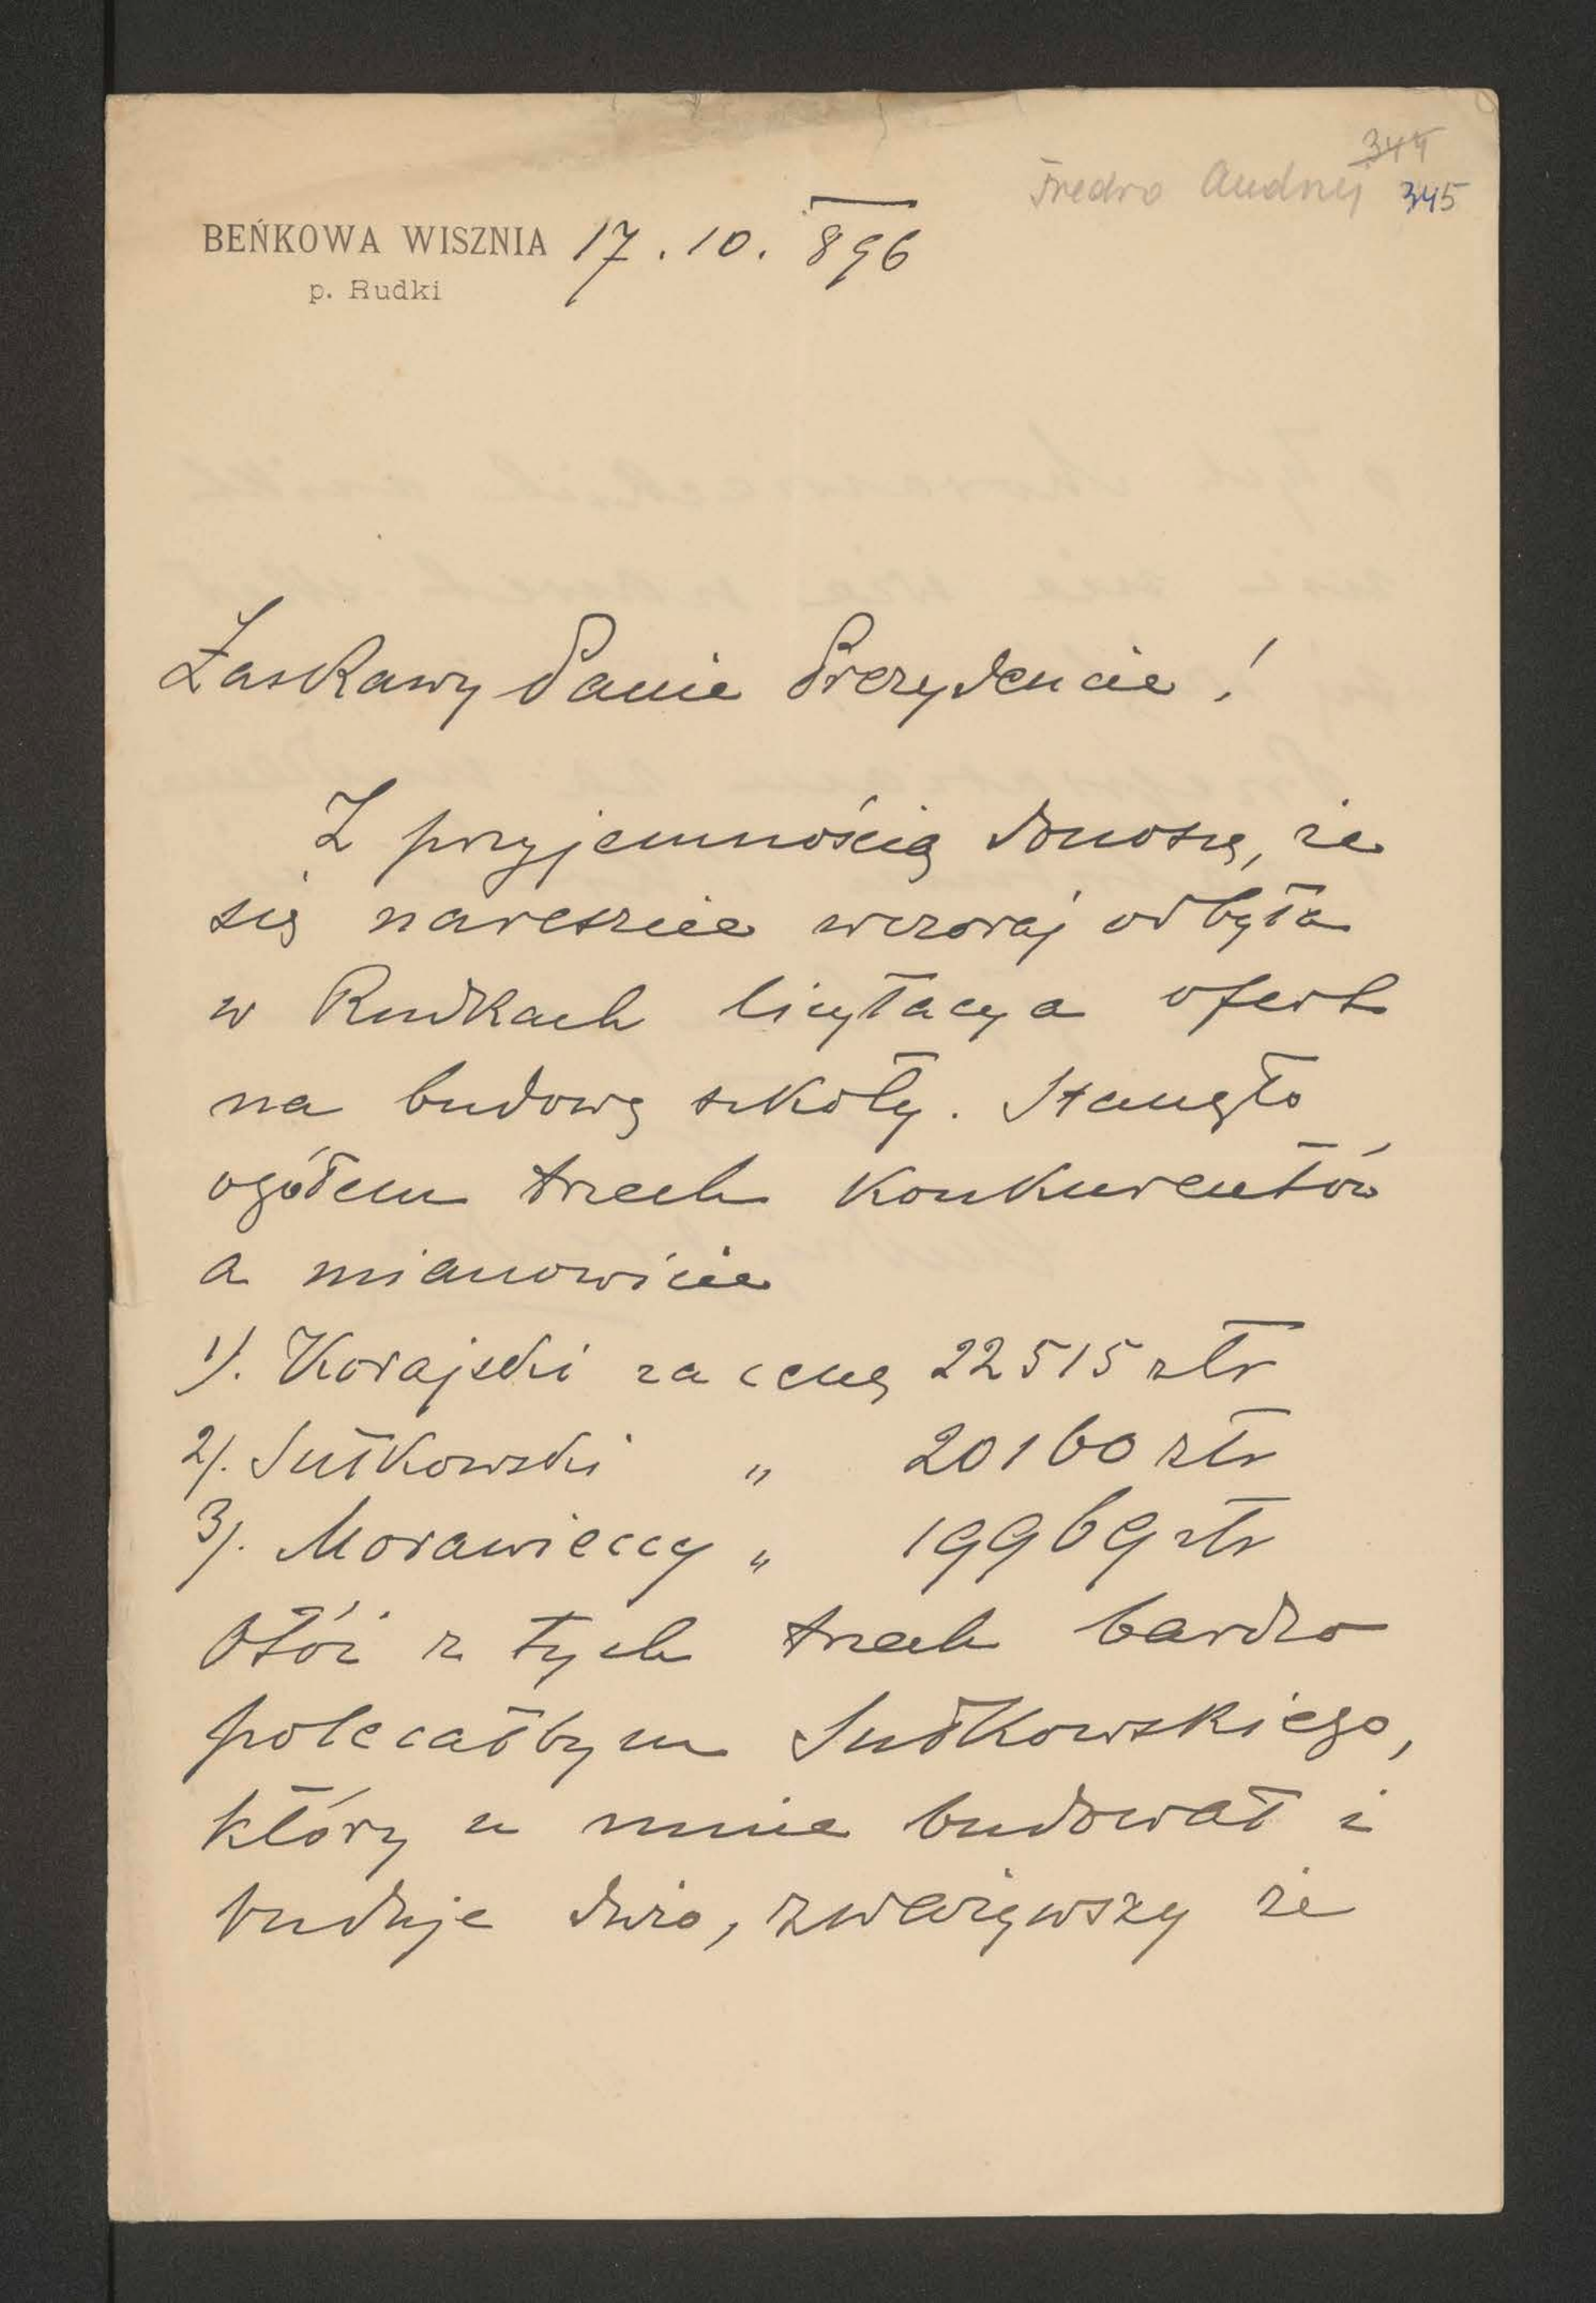 344
Fredro Andrzej 345
BEŃKOWA WISZNIA 17.10.896
p. Rudki
Łaskawy Panie Prezydencie!
Z przyjemnością donoszę, że
się nareszcie wczoraj odbyła
w Rudkach licytacya ofert
na budowę szkoły. Stanęło
ogółem trzech konkurentów
a mianowicie
1). Korajski za cenę 22515 złr
2). Sułkowski " 20160 złr
3). Morawieccy " 19969 złr
Otóż z tych trzech bardzo
polecałbym Sułkowskiego,
który u mnie budował i
buduje dużo, zważywszy że